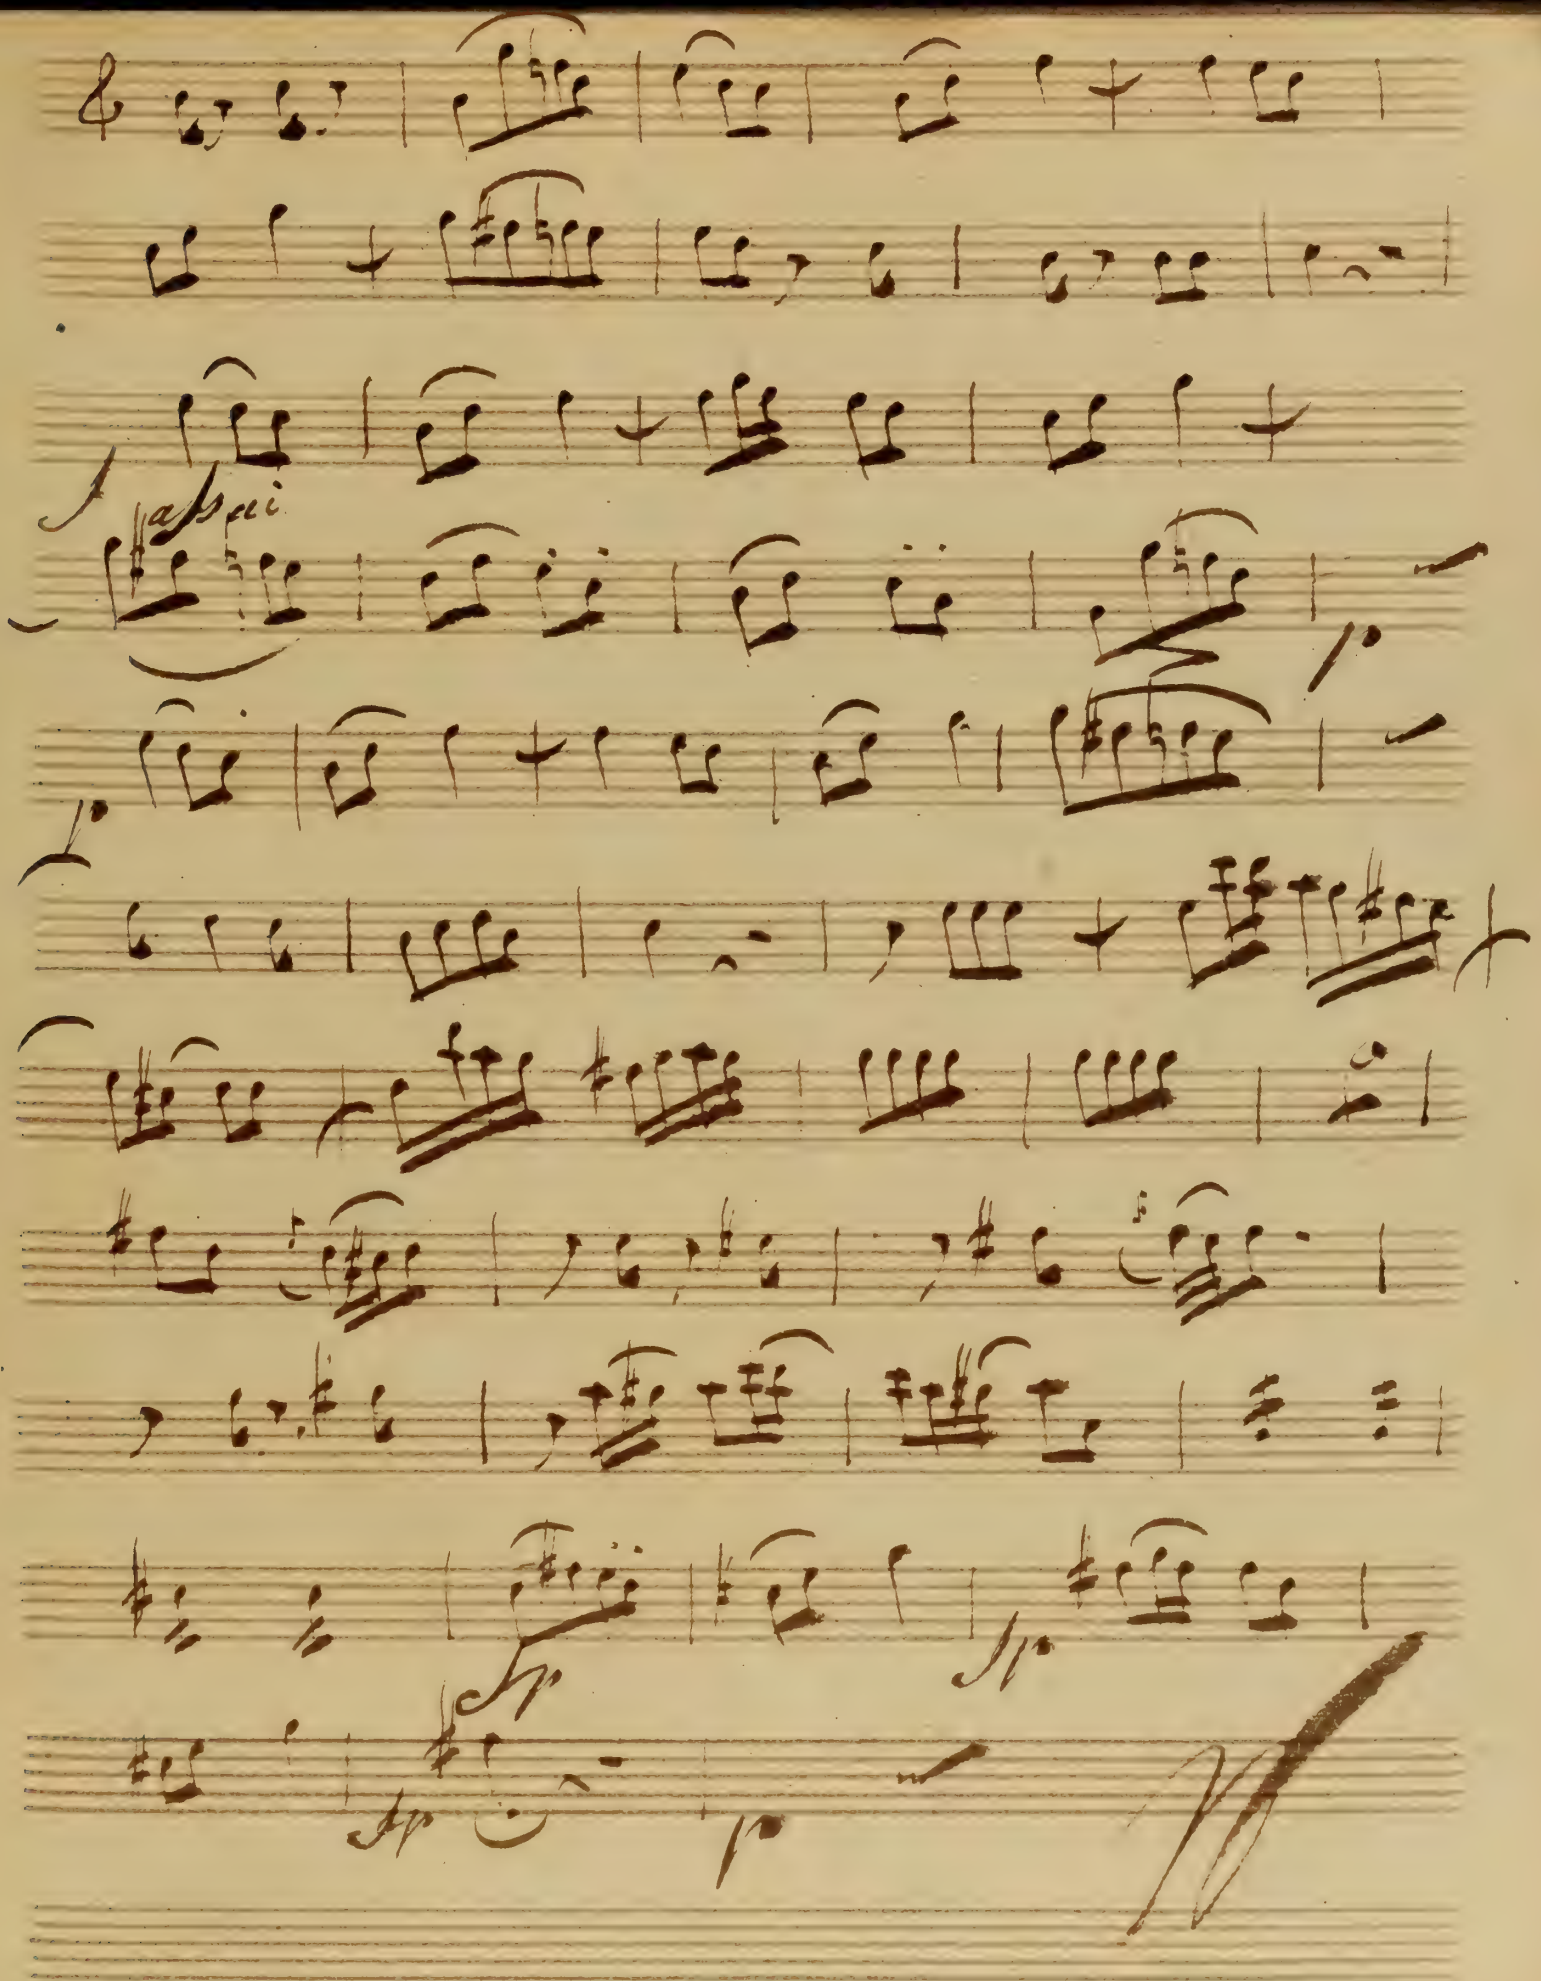 f assai
p
p
fp
fp
fp
p